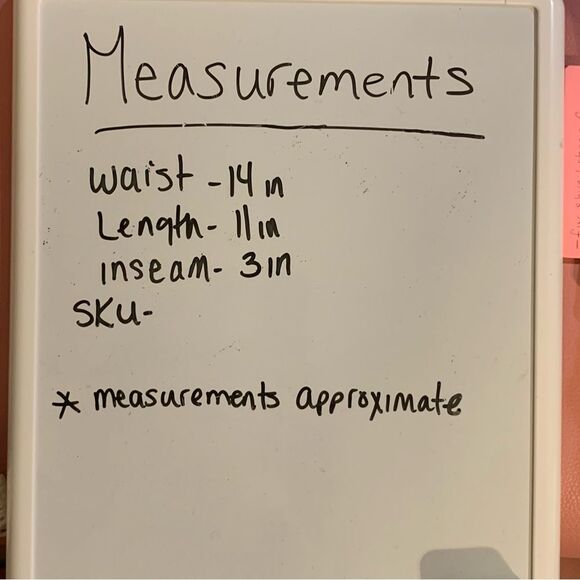 Measurements
waist - 14 in
Length - 11 in
inseam - 3 in
SKU-
* measurements approximate